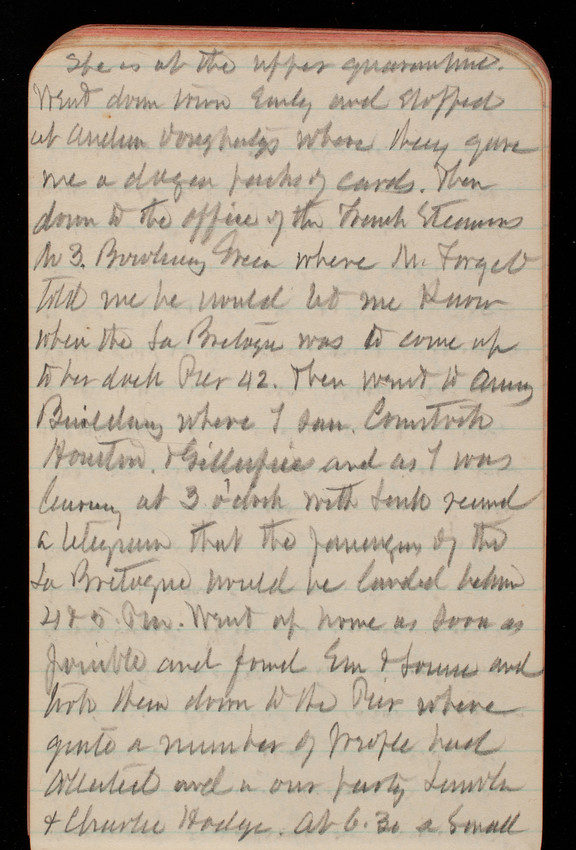 She is at the upper quarantine.
Went down town Early and stopped
at where they gave
me a dozen packs of cards. Then
down to the office of the French Steamers
No 3. Bowling Green where Mr. Forget
told me he would let me Know
when the La Bretagne was to come up
to her dock Pier 42. Then went to Army
Building where I saw. Comstock
Houston, & Gillespie and as I was
leaving at 3 o'clock with recued
a telegram that the passengers of the
La Bretagne would be landed between
4 & 5. Pm. Went up home as soon as
possible and found Em & Louise and
took them down to the Pier where
quite a number of people had
collected and in our party
& Charlie Hodge. At 6.30 a Small